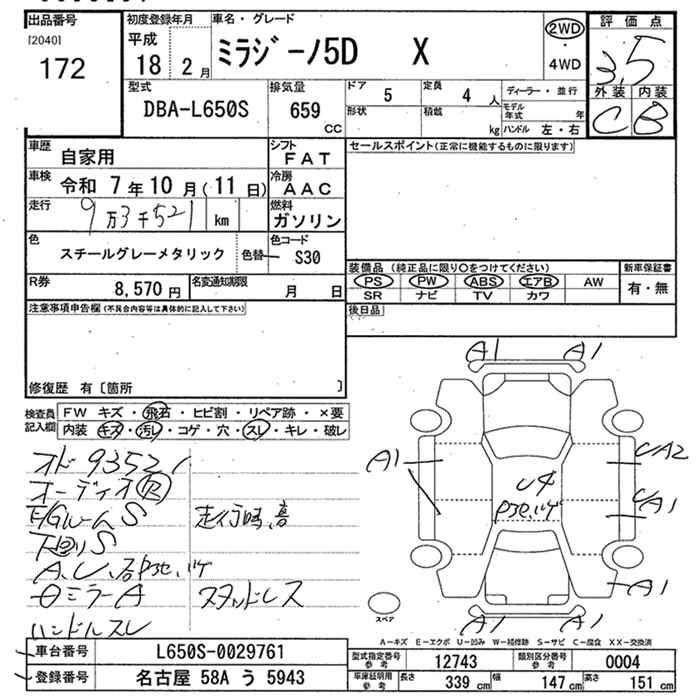 出品番号 初度登録年月 車名・グレード 評価点
[2040] 172 平成 18 2月 ミラジーノ5D X 2WD・4WD 3.5
型式 排気量 ドア 5 定員 4人 ディーラー・並行 外装 内装
DBA-L650S 659 CC 形状 積載 kg モデル年式 年 ハンドル 左・右 C B
車歴 自家用 シフト FAT セールスポイント(正常に機能するものに限ります)
車検 令和 7年10月(11日) 冷房 AAC
走行 9万3千521 km 燃料 ガソリン
色 スチールグレーメタリック 色替 色コード S30
装備品(純正品に限り○をつけてください) 新車保証書
R券 8,570円 名変通知期限 月 日 PS PW ABS エアB AW 有・無
SR ナビ TV カワ
注意事項申告欄(不具合内容等は具体的に記入して下さい) 後日品
修復歴 有〔箇所 〕
検査員記入欄 FW キズ・飛石・ヒビ割・リペア跡・×要
内装 キズ・汚レ・コゲ・穴・スレ・キレ・破レ
A1 A1
オド93521 A1 UA2
オーディオ欠 U4
E/Gルーム S 走行時、音 UA1
下回り S
A1
ミラーA スタッドレス
ハンドルスレ スペア A1 A1
A-キズ E-エクボ U-凹み W-補修跡 S-サビ C-腐食 XX-交換済
車台番号 L650S-0029761 型式指定番号 参考 12743 類別区分番号 参考 0004
登録番号 名古屋 58A う 5943 車庫証明用 参考 長さ 339 cm 幅 147 cm 高さ 151 cm